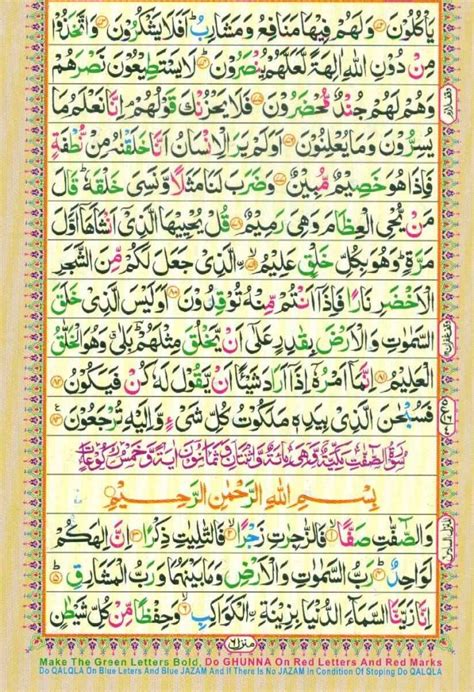 يَاْكُلُوْنَ وَلَهُمْ فِيْهَا مَنَافِعُ وَمَشَارِبُ اَفَلَا يَشْكُرُوْنَ وَاتَّخَذُوْا
مِنْ دُوْنِ اللّٰهِ اٰلِهَةً لَّعَلَّهُمْ يُنْصَرُوْنَ لَا يَسْتَطِيْعُوْنَ نَصْرَهُمْ
وَهُمْ لَهُمْ جُنْدٌ مُّحْضَرُوْنَ فَلَا يَحْزُنْكَ قَوْلُهُمْ اِنَّا نَعْلَمُ مَا
يُسِرُّوْنَ وَمَا يُعْلِنُوْنَ اَوَلَمْ يَرَ الْاِنْسَانُ اَنَّا خَلَقْنٰهُ مِنْ نُّطْفَةٍ
فَاِذَا هُوَ خَصِيْمٌ مُّبِيْنٌ وَضَرَبَ لَنَا مَثَلًا وَّنَسِيَ خَلْقَهٗ قَالَ
مَنْ يُّحْيِ الْعِظَامَ وَهِيَ رَمِيْمٌ قُلْ يُحْيِيْهَا الَّذِيْ اَنْشَاَهَا اَوَّلَ
مَرَّةٍ وَهُوَ بِكُلِّ خَلْقٍ عَلِيْمُ الَّذِيْ جَعَلَ لَكُمْ مِّنَ الشَّجَرِ
الْاَخْضَرِ نَارًا فَاِذَا اَنْتُمْ مِّنْهُ تُوْقِدُوْنَ اَوَلَيْسَ الَّذِيْ خَلَقَ
السَّمٰوٰتِ وَالْاَرْضَ بِقٰدِرٍ عَلٰى اَنْ يَّخْلُقَ مِثْلَهُمْ بَلٰى وَهُوَ الْخَلّٰقُ
الْعَلِيْمُ اِنَّمَا اَمْرُهٗ اِذَا اَرَادَ شَيْئًا اَنْ يَّقُوْلَ لَهٗ كُنْ فَيَكُوْنُ
فَسُبْحٰنَ الَّذِيْ بِيَدِهٖ مَلَكُوْتُ كُلِّ شَيْءٍ وَّاِلَيْهِ تُرْجَعُوْنَ
سُوْرَةُ الصّٰفّٰتِ مَكِّيَّةٌ وَهِيَ مِائَةٌ وَاثْنَتَانِ وَثَمَانُوْنَ اٰيَةً وَخَمْسُ رُكُوْعَاتٍ
بِسْمِ اللّٰهِ الرَّحْمٰنِ الرَّحِيْمِ
وَالصّٰفّٰتِ صَفًّا فَالزّٰجِرٰتِ زَجْرًا فَالتّٰلِيٰتِ ذِكْرًا اِنَّ اِلٰهَكُمْ
لَوَاحِدٌ رَبُّ السَّمٰوٰتِ وَالْاَرْضِ وَمَا بَيْنَهُمَا وَرَبُّ الْمَشَارِقِ
اِنَّا زَيَّنَّا السَّمَآءَ الدُّنْيَا بِزِيْنَةِ الْكَوَاكِبِ وَحِفْظًا مِّنْ كُلِّ شَيْطٰنٍ
منزل ٦
Make The Green Letters Bold, Do GHUNNA On Red Letters And Red Marks
Do QALQLA On Blue Leters And Blue JAZAM And If There Is No JAZAM In Condition Of Stoping Do QALQLA